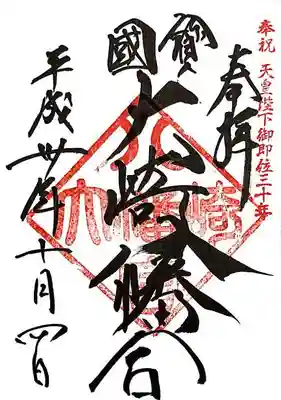 奉祝 天皇陛下御即位三十年
奉拝
國寶
大崎八幡宮
平成卅年十月四日
大崎八幡宮